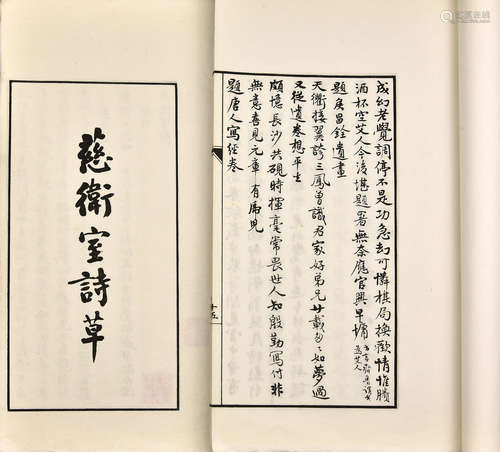 成幻老覺調停不是功急劫可憐棋局換歡情惟賸
酒杯空艾人今後堪題署無奈龐官興早慵
題侯昌銓遺畫
天衢接翼誇三鳳曾識君家好弟兄廿載匆匆如夢過
又從遺卷想平生
頗憶長沙共硯時擅毫常畏世人知殷勤寫付非
無意喜見元章有虎兒
題唐人寫經卷
十五
慈衛室詩草